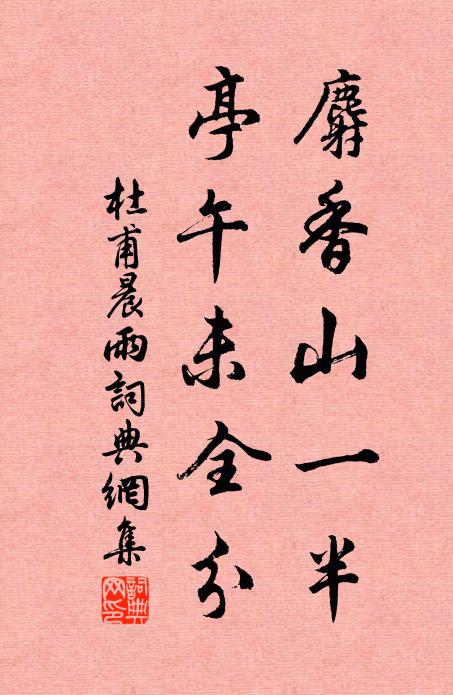 麝香山一半
亭午未全分
杜甫晨雨詞典網集
詞典網印